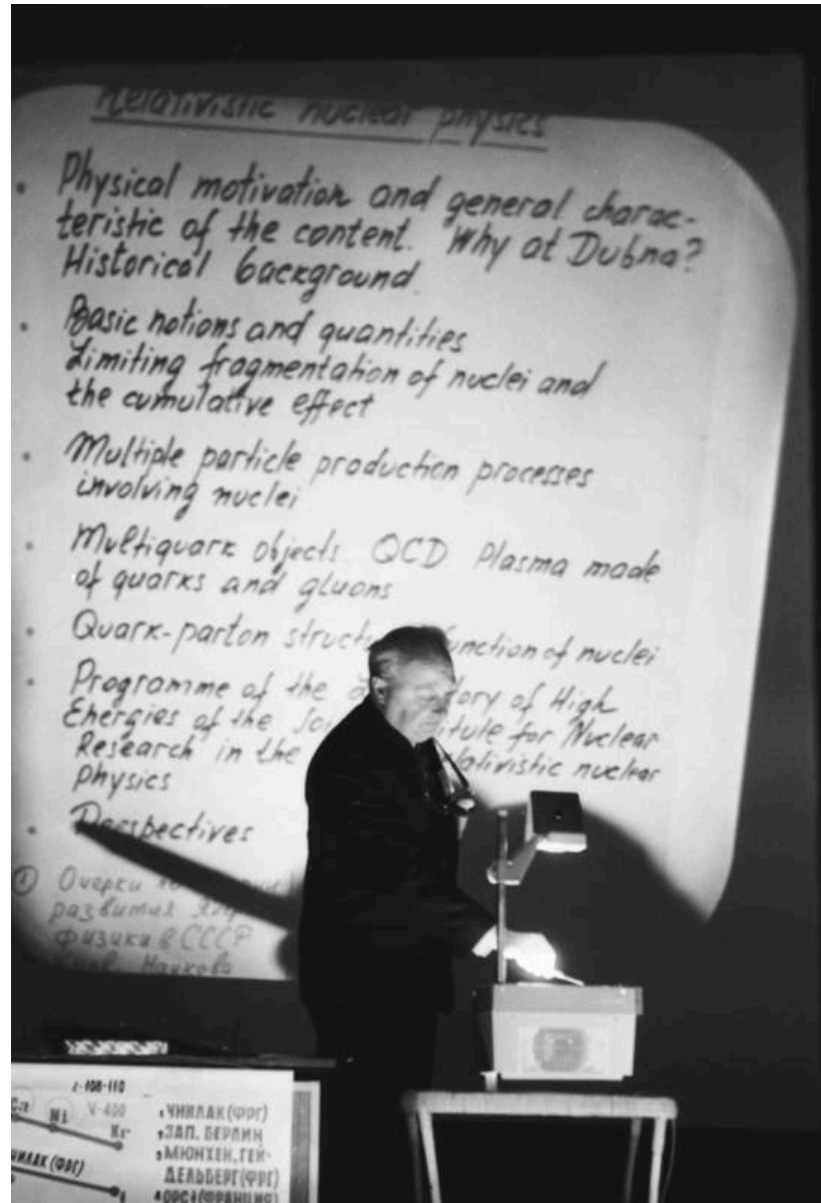 Relativistic nuclear physics
• Physical motivation and general charac-
teristic of the content. Why at Dubna?
Historical background.
• Basic notions and quantities
Limiting fragmentation of nuclei and
the cumulative effect
• Multiple particle production processes
involving nuclei
• Multiquark objects. QCD Plasma made
of quarks and gluons
• Quark-parton function of nuclei
• Programme of the of High
Energies of the for Nuclear
Research in the nuclear
Physics
• Perspectives
① Очерки
развития
физики в СССР
Наукова
Z-108-110
Ca Ni V-400
Kr
1 УНИЛАК (ФРГ)
2 ЗАП. БЕРЛИН
3 МЮНХЕН, ГЕЙ-
ДЕЛЬБЕРГ (ФРГ)
4 ОРСЕ (ФРАНЦИЯ)
(ФРГ)